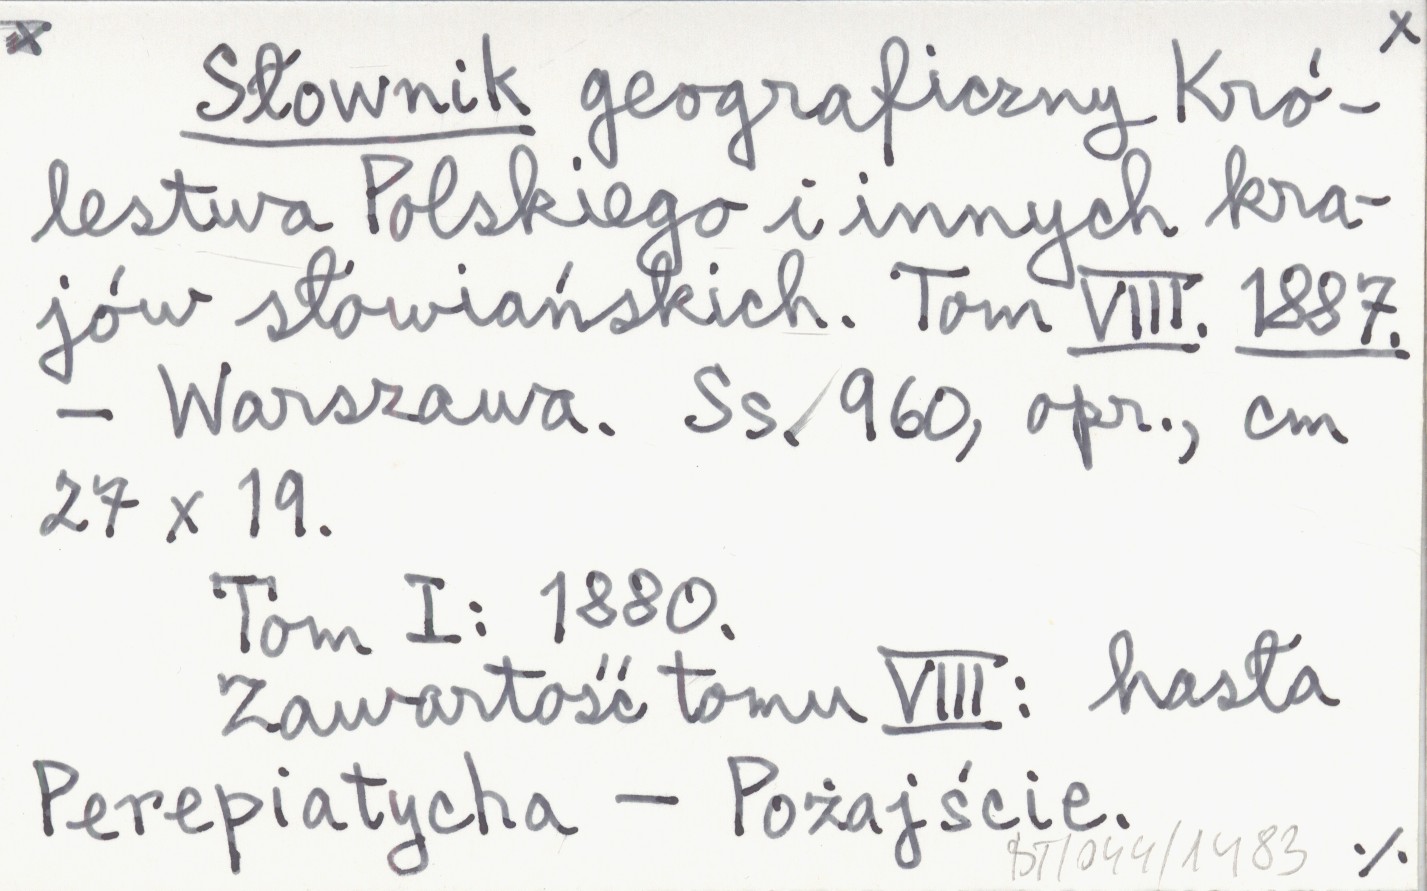 x x
Słownik geograficzny Kró-
lestwa Polskiego i innych kra-
jów słowiańskich. Tom VIII. 1887.
— Warszawa. Ss. 960, opr., cm
27 x 19.
Tom I: 1880.
Zawartość tomu VIII: hasła
Perepiatycha — Pożajście.
BT/044/1483 ./.